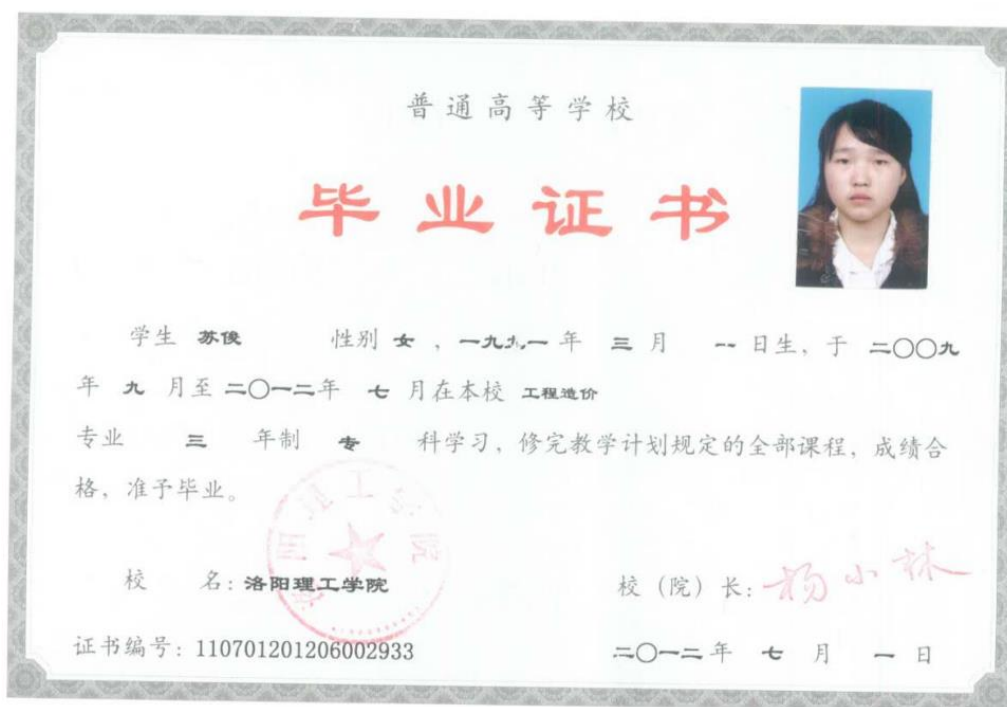 普通高等学校
毕业证书
学生 苏俊 性别 女 ，一九九一 年 三 月 一 日生，于 二〇〇九
年 九 月至 二〇一二年 七 月在本校 工程造价
专业 三 年制 专 科学习，修完教学计划规定的全部课程，成绩合
格，准予毕业。
洛阳理工学院
校 名：洛阳理工学院 校（院）长：杨小林
证书编号：110701201206002933 二〇一二年 七 月 一 日